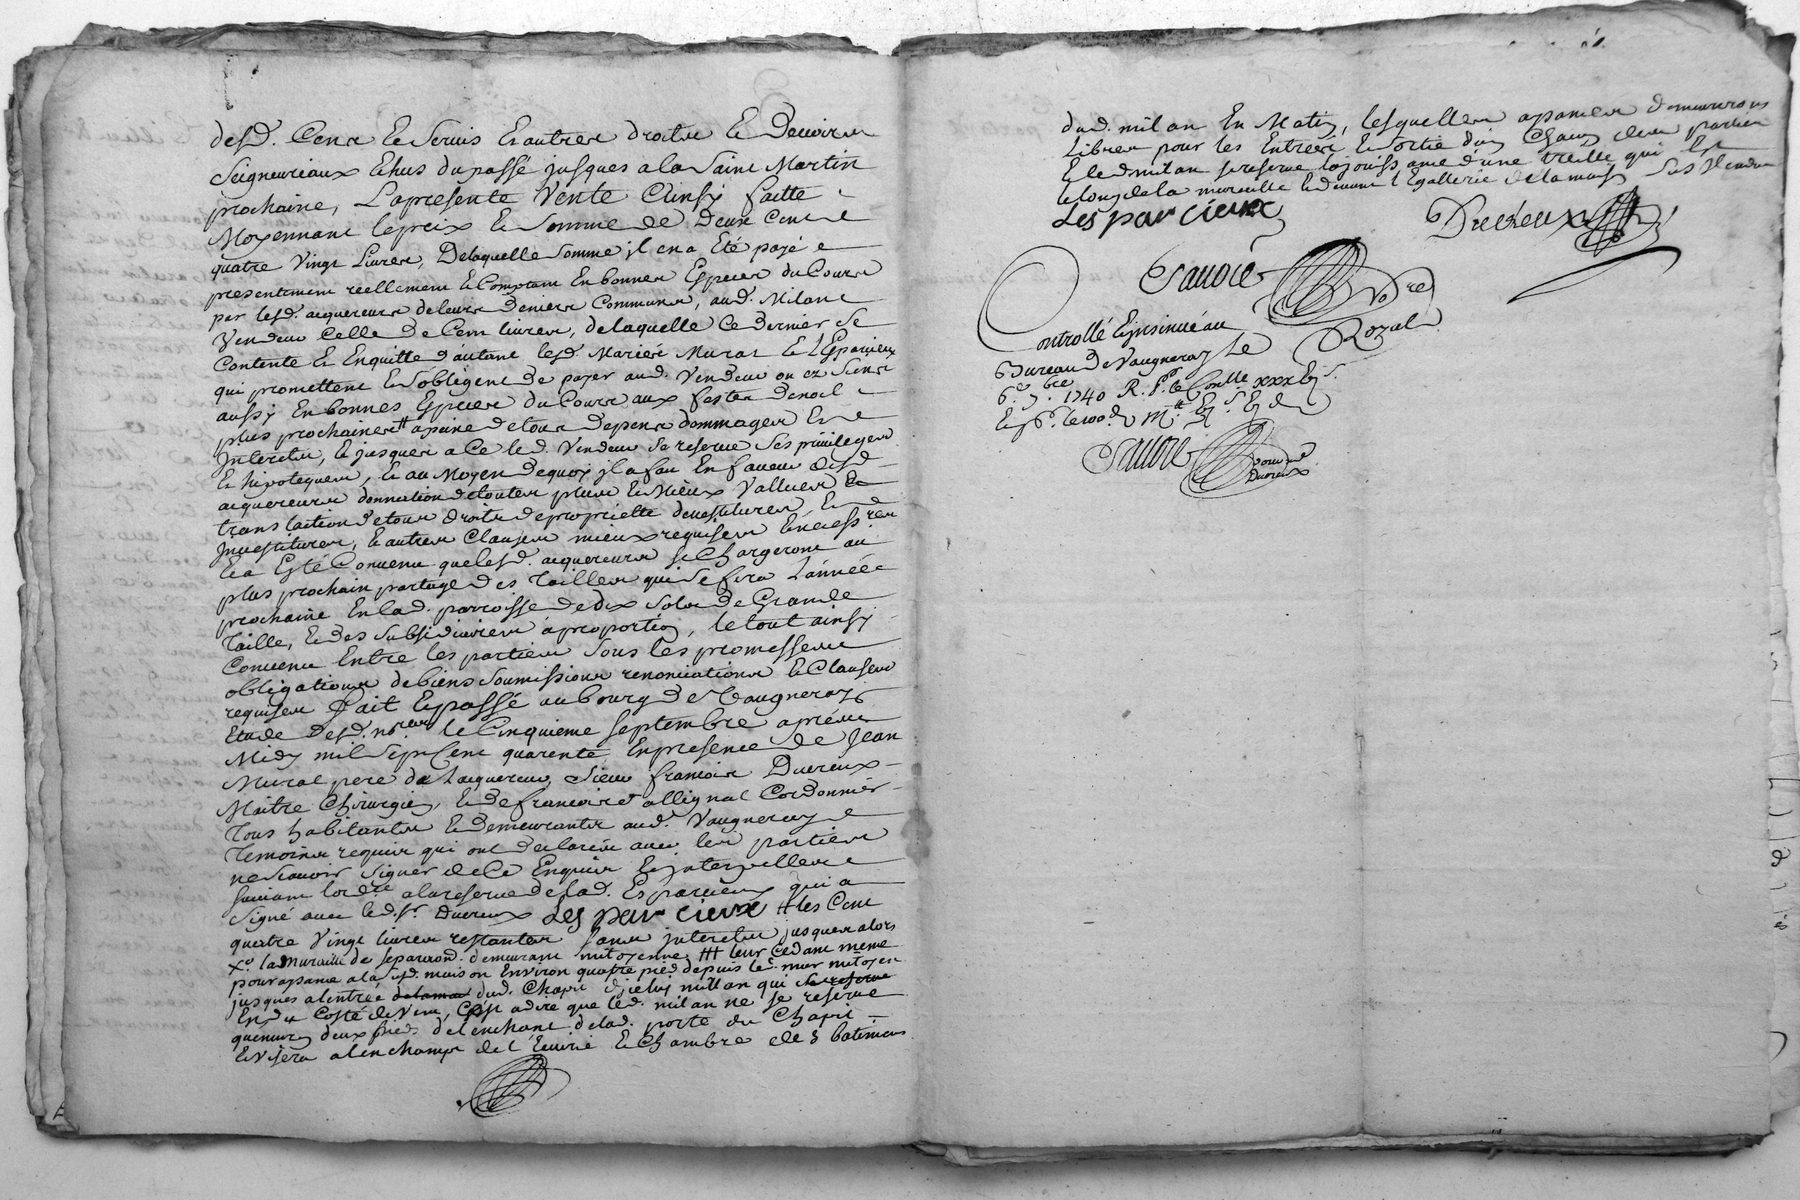 desd. Cens & Servis & autres droits & devoirs
Seigneuriaux & hus du passé jusques a la Saint Martin
prochaine, La presente Vente Ainsy faitte
Moyennant le prix & Somme de Deux Cent
quatre Vingt Livres, De laquelle Somme il en a Eté payé
presentement reellement & Comptant En bonnes Especes du Cours
par lesd. acquereurs de leurs deniers Communs, aud. Milan
Vendeur Celle de Cent livres, de laquelle Ce dernier Se
Contente & En quitte d'autant lesd. Mariés Murat & L'Eparcieux
qui promettent & S'obligent de payer aud. Vendeur ou ez Siens
aussy En bonnes Especes du Cours aux festes de noel
plus prochaines # a peine de tous depens dommages &
Interets, & jusques a Ce led. Vendeur Se reserve Ses privileges
& hipoteques, & au Moyen de quoy il a fait En faveur desd.
acquereurs donnation de toutes plus & Mieux Vallues &
translaction de tous droits de proprietté devestitures, &
Investitures, & autres Clauses mieux requises & necess.res
& a Esté Convenu que lesd. acquereurs Se Chargeront au
plus prochain partage des Tailles qui Se fera L'année
prochaine En lad. parroisse de dix Sols de Grande
Taille, & des Subsidiaires a proportion, le tout ainsy
Convenu Entre les parties Sous les promesses
obligations de biens Soumissions renonciations & Clauses
requises Fait & passé au bourg de Vaugneray
Etude desd. no.res le Cinquieme Septembre aprés
Midy mil Sept Cent quarente, En presence de Jean
Murat pere de l'acquereur, Sieur françois Ducreux
Maitre Chirurgien, & de françois allignal Cordonnier
Tous habitants & demeurants aud. Vaugneray
Temoins requis qui ont declarés avec les parties
ne Scavoir Signer de Ce Enquis & interpellés
Suivant lord.ce a la reserve de lad. Esparcieux qui a
Signé avec led. Sr. Ducreux Les par cieux # les Cent
quatre Vingt livres restantes Sans interets jusques alors
X.o la Muraille de Separaon. demeurant mitoyenne ## leur Cedant même
pour apance a la Sd. maison Environ quatre pied depuis le d. mur mitoyen
jusques a l'entrée dud. Chapit d'icelui millan qui
En d. Costé de Vent, C'est a dire que led. milan ne Se reserve
que deux pieds de l'enchant de lad. porte du Chapit
& Visera a l'enchamp de l'Ecurie & Chambre des batimens
dud. milan En Matin, lesquelles apances demeureront
Libres pour les Entrées & Sortie d'un Chacun des parties
& led. milan Se reserve la jouissance d'une treille qui Est
le long de la muraille & devant l'Egallerie de la maison Sus Vendue
Les par cieux Ducreux
Savoie
No.re
Royal
Controllé & insinué au
Bureau de Vaugneray le
6.e 7.bre 1740
Savoie
Ducreux